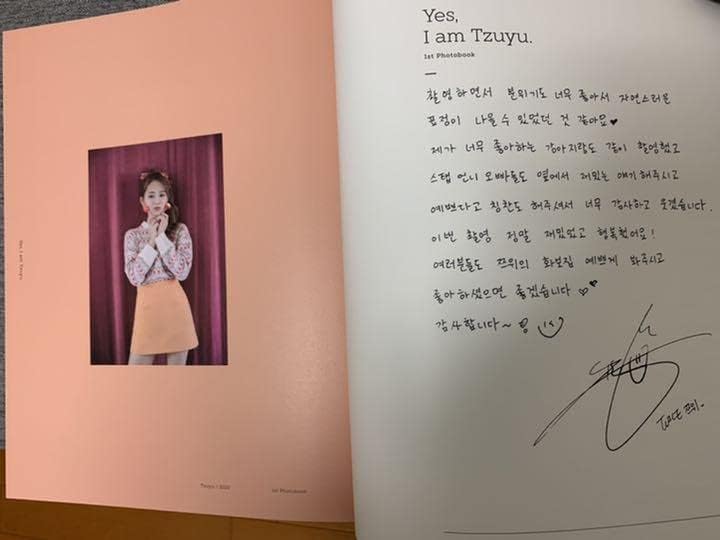 Yes, I am Tzuyu.
Tzuyu / 2020
1st Photobook
Yes,
I am Tzuyu.
1st Photobook
촬영하면서 분위기도 너무 좋아서 자연스러운
표정이 나올 수 있었던 것 같아요♥
제가 너무 좋아하는 강아지랑도 같이 촬영했고
스탭 언니 오빠들도 옆에서 재밌는 얘기해주시고
예쁘다고 칭찬도 해주셔서 너무 감사하고
이번 촬영 정말 재밌었고 행복했어요!
여러분들도 쯔위의 화보집 예쁘게 봐주시고
좋아하셨으면 좋겠습니다♡♥
감사합니다~
TWICE 쯔위-